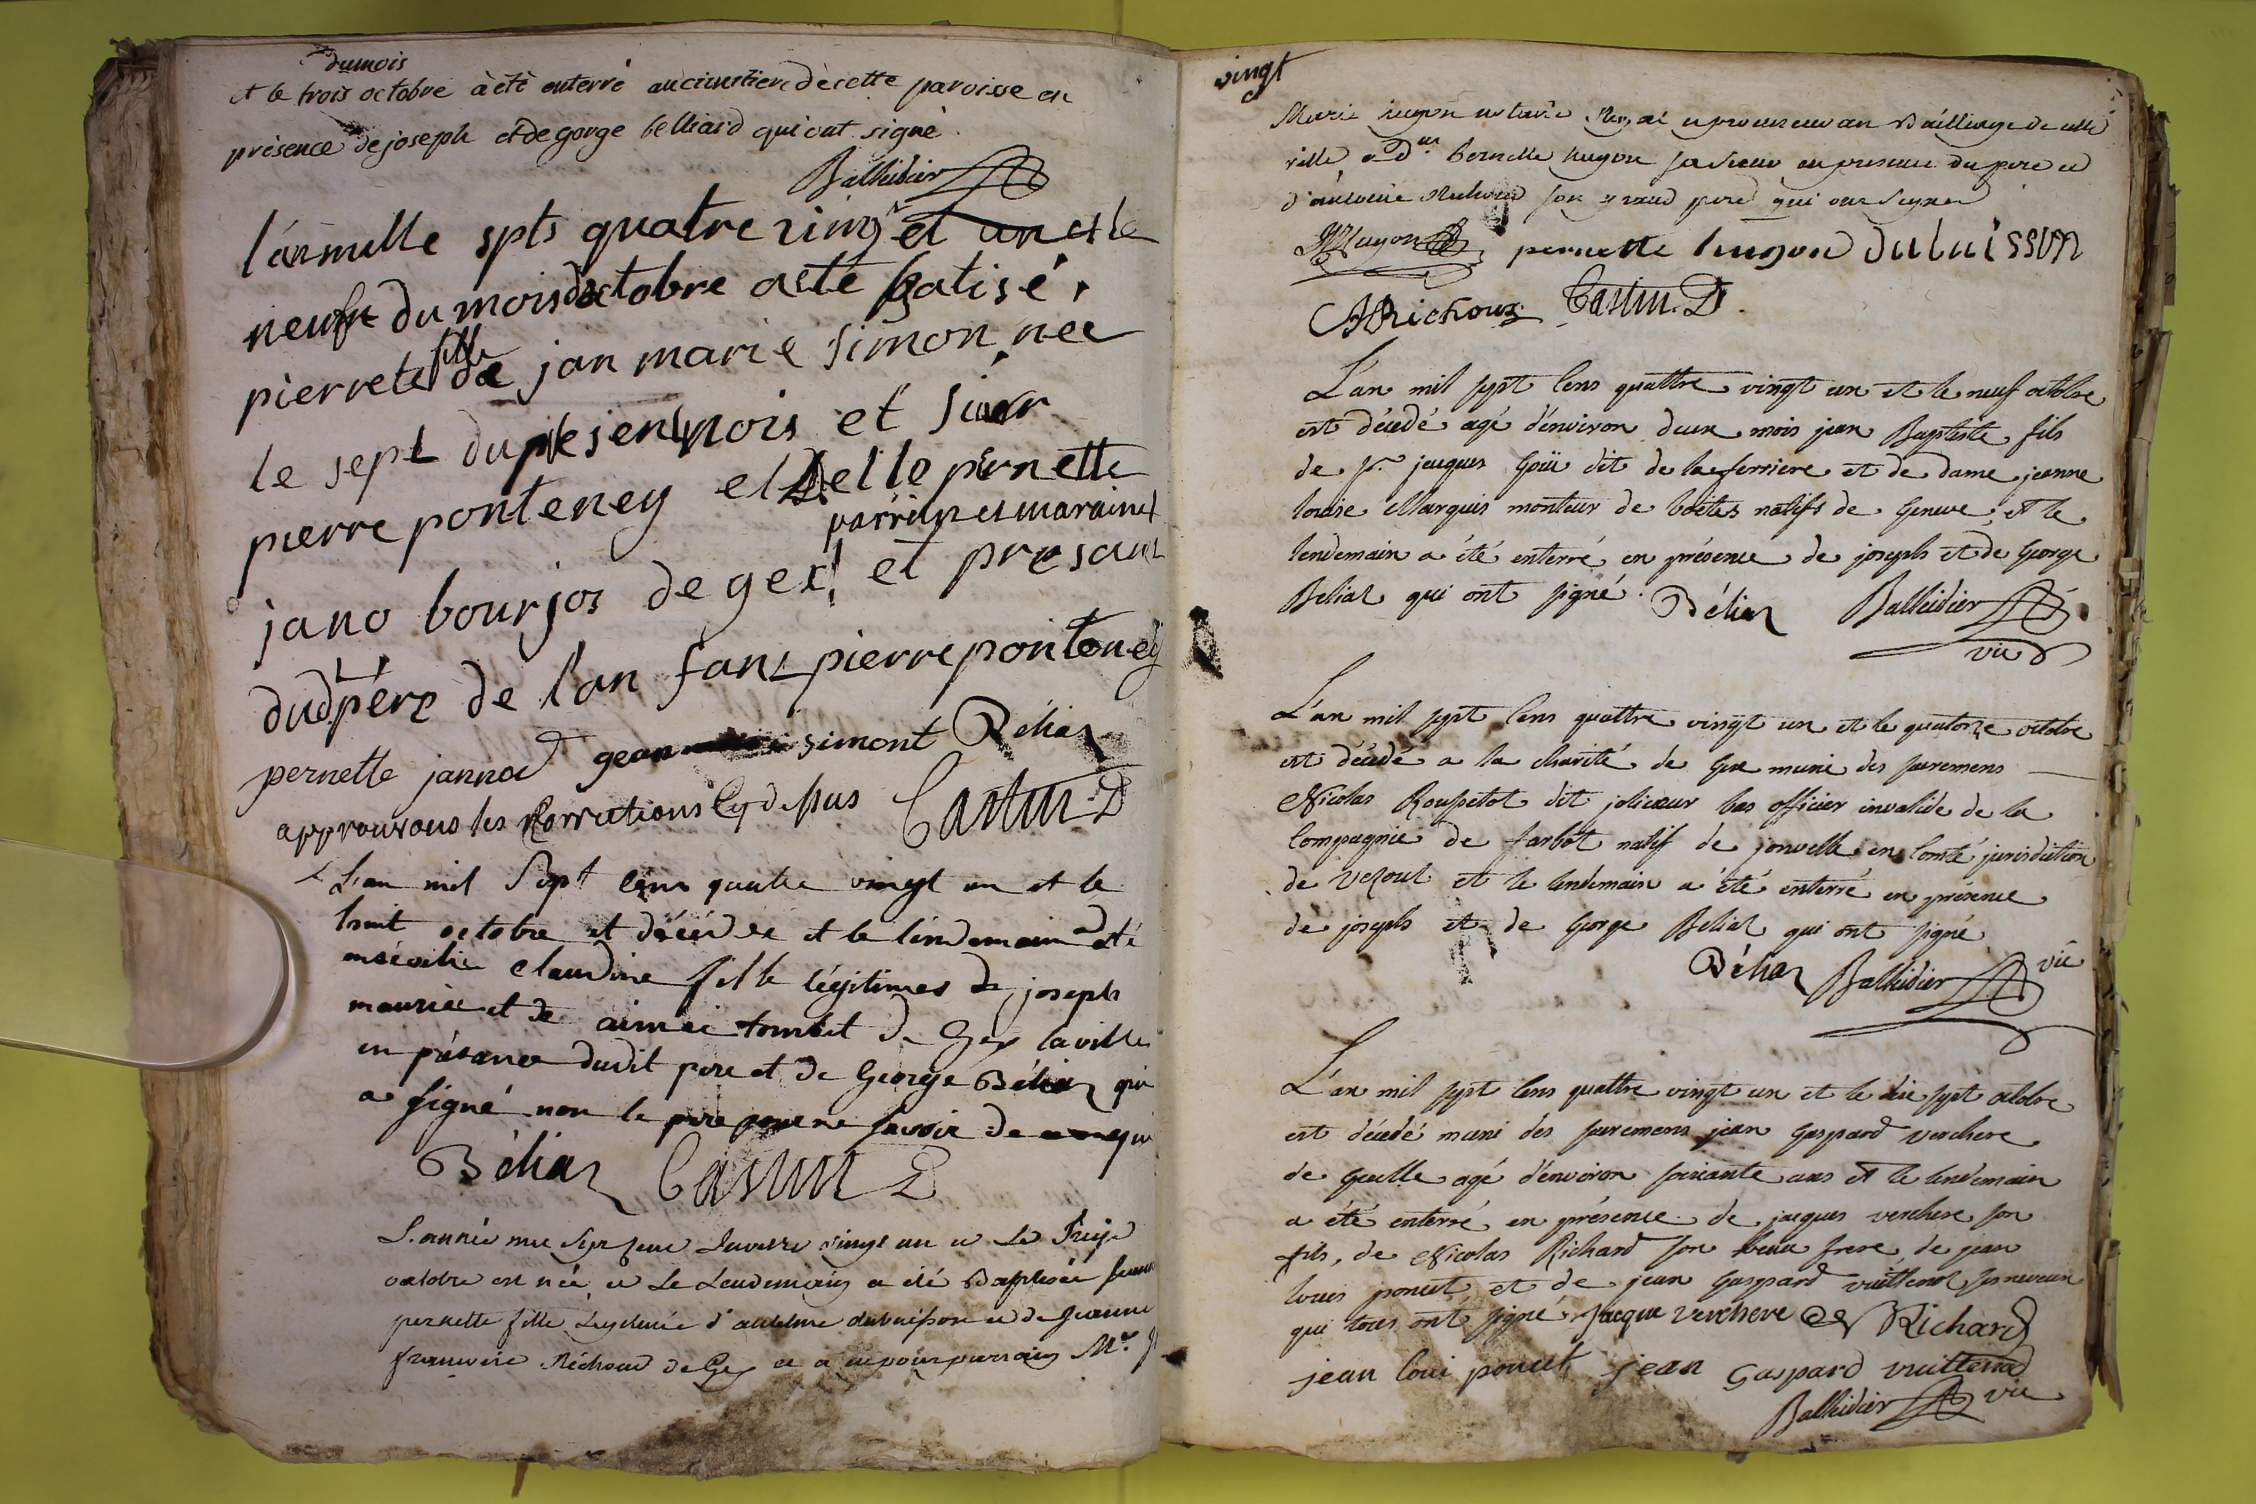 dumois
et le trois octobre à été enterré au cimetiere dècette paroisse en
présence de joseph et de gorge belliard qui ont signé
Balleidier
l'an mille spts quatre vingt et un et le
neufu du mois doctobre a etè batisé
pierrete fille de jan marie simon nee
le sept du presentmois et sieur
pierre ponteney et delle pernette
parrin et maraine
jano bourjos de gex et presant
dudt pére de lan fant pierre ponteney
pernette jannod gean simont Béliaz
approuvons les Corrections Cydessus Castin D
L'an mil Sept cens quatre vingt un et le
huit octobre est décédée et le lendemain a été
ensévelie claudine fille légitimes de joseph
maurier et de aimée tombet de Gex la ville
en présance dudit pere et de George Béliaz qui
a signé non le pere pour ne savoir de enquis
Béliaz Castin D
L'année mil sept cent quatre vingt un et le
octobre est née et Le Lendemain a été Baptisée
pernette fille Légitimée d'antelme dubuisson et de Jeanne
francoise Réchoud de Gex et a eu pour parrain Mr
vingt
Marie hugon notaire Royal et procureur au Bailliage de cette
ville et Dlle Pernette hugon sa soeur en presence du pere et
d'antoine Richoud son grand pere qui ont signé
Hugon pernette hugon dubuisson
Richoux Castin D.
L'an mil sept Cens quattre vingt un et le neuf octobre
est décédé agé d'environ deux mois jean Baptiste fils
de Sr jacques Goüi dit de la ferriere et de dame jeanne
louise Marquis monteur de boëtes natifs de Geneve, et le
lendemain a été enterré en présence de joseph et de George
Béliaz qui ont signé. Béliaz Balleidier
vic
L'an mil sept Cens quattre vingt un et le quatorze octobre
est décédé a la charité de Gex muni des sacremens
Nicolas Roupetot dit jolicoeur bas officier invalide de la
Compagnie de farbot natif de jonvelle en Comté jurisdiction
de vezoul et le lendemain a été enterré en présence
de joseph et de George Béliaz qui ont signé
Béliaz Balleidier vic
L'an mil sept Cens quattre vingt un et le dix sept octobre
est décédé muni des sacremens jean Gaspard verchere
de Gex ville agé d'environ soixante ans et le lendemain
a été enterré en présence de jacques verchere son
fils, de Nicolas Richard son beau frere, de jean
louis poncet et de jean Gaspard vuittenot ses neveux
qui tous ont signé. Jacque verchere Richard
jean loui poncet jean Gaspard vuittenod
Balleidier vic